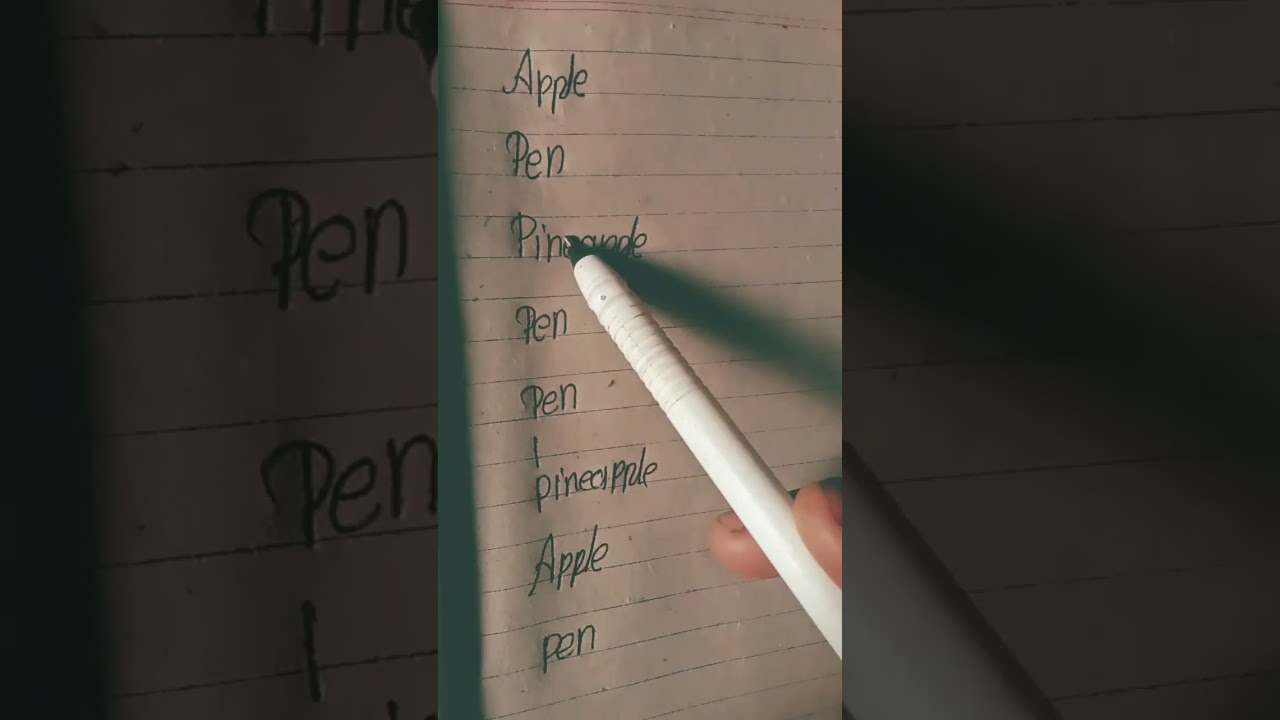 Apple
Pen
Pineapple
Pen
Pen
I
pineapple
Apple
pen